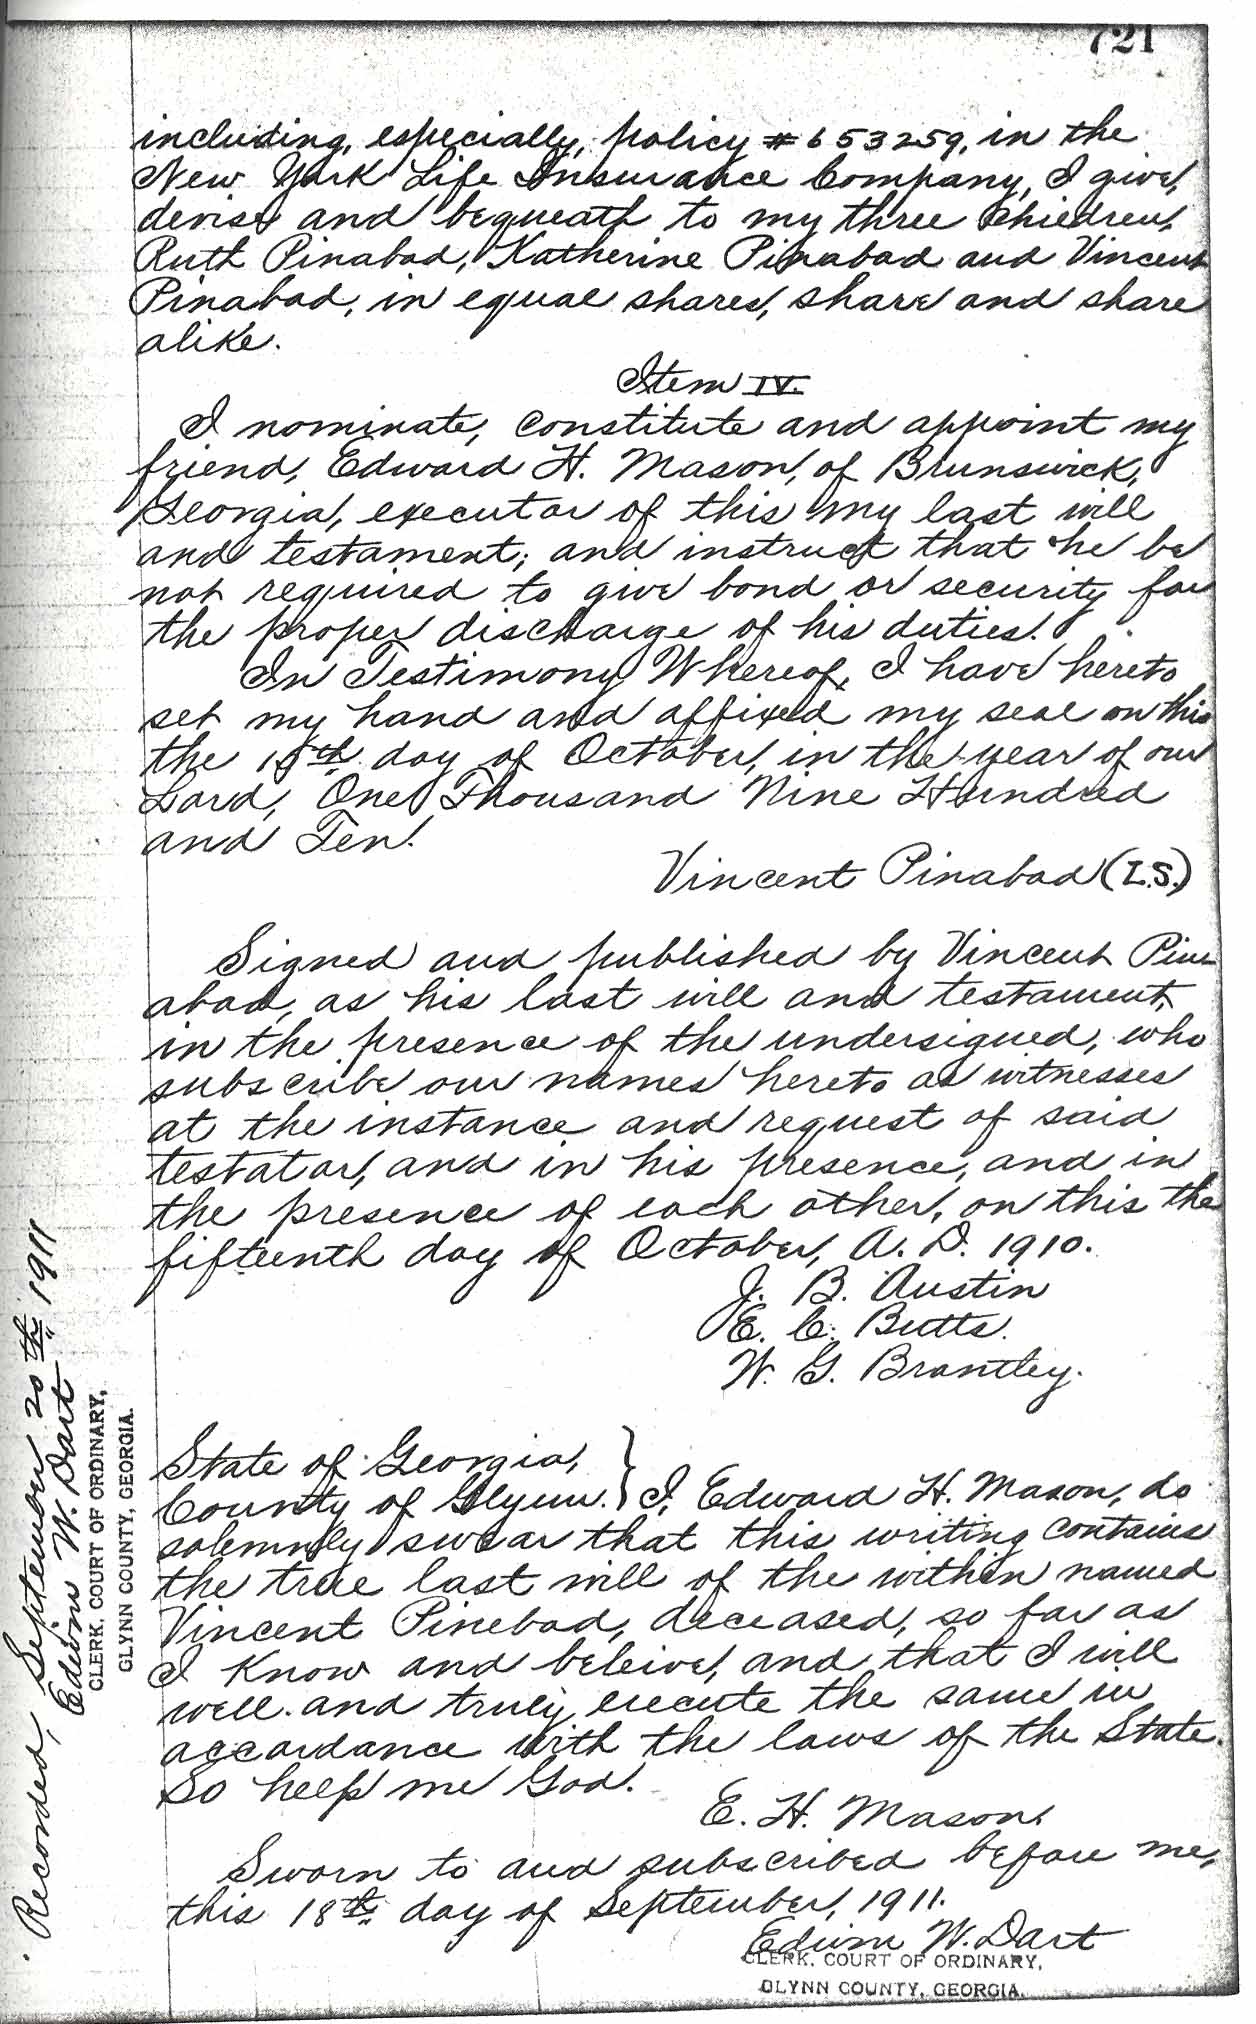 721
including, especially, policy #653259, in the
New York Life Insurance Company, I give,
devise and bequeath to my three children,
Ruth Pinabad, Katherine Pinabad and Vincent
Pinabad, in equal shares, share and share
alike.
Item IV.
I nominate, constitute and appoint my
friend, Edward H. Mason, of Brunswick,
Georgia, executor of this my last will
and testament; and instruct that he be
not required to give bond or security for
the proper discharge of his duties.
In Testimony Whereof, I have hereto
set my hand and affixed my seal on this
the 15th day of October, in the year of our
Lord, One Thousand Nine Hundred
and Ten.
Vincent Pinabad (L.S.)
Signed and published by Vincent Pin-
abad, as his last will and testament,
in the presence of the undersigned, who
subscribe our names hereto as witnesses
at the instance and request of said
testator, and in his presence, and in
the presence of each other, on this the
fifteenth day of October, A. D. 1910.
J. B. Austin
E. C. Butts.
W. G. Brantley.
State of Georgia,
County of Glynn. } I, Edward H. Mason, do
solemnly swear that this writing contains
the true last will of the within named
Vincent Pinebad, deceased, so far as
I know and beleive, and that I will
well and truly execute the same in
accordance with the laws of the State.
So help me God.
E. H. Mason.
Sworn to and subscribed before me,
this 18th day of September, 1911.
Edwin W. Dart
CLERK, COURT OF ORDINARY,
GLYNN COUNTY, GEORGIA.
Recorded, September 20th 1911
Edwin W. Dart
CLERK, COURT OF ORDINARY,
GLYNN COUNTY, GEORGIA.